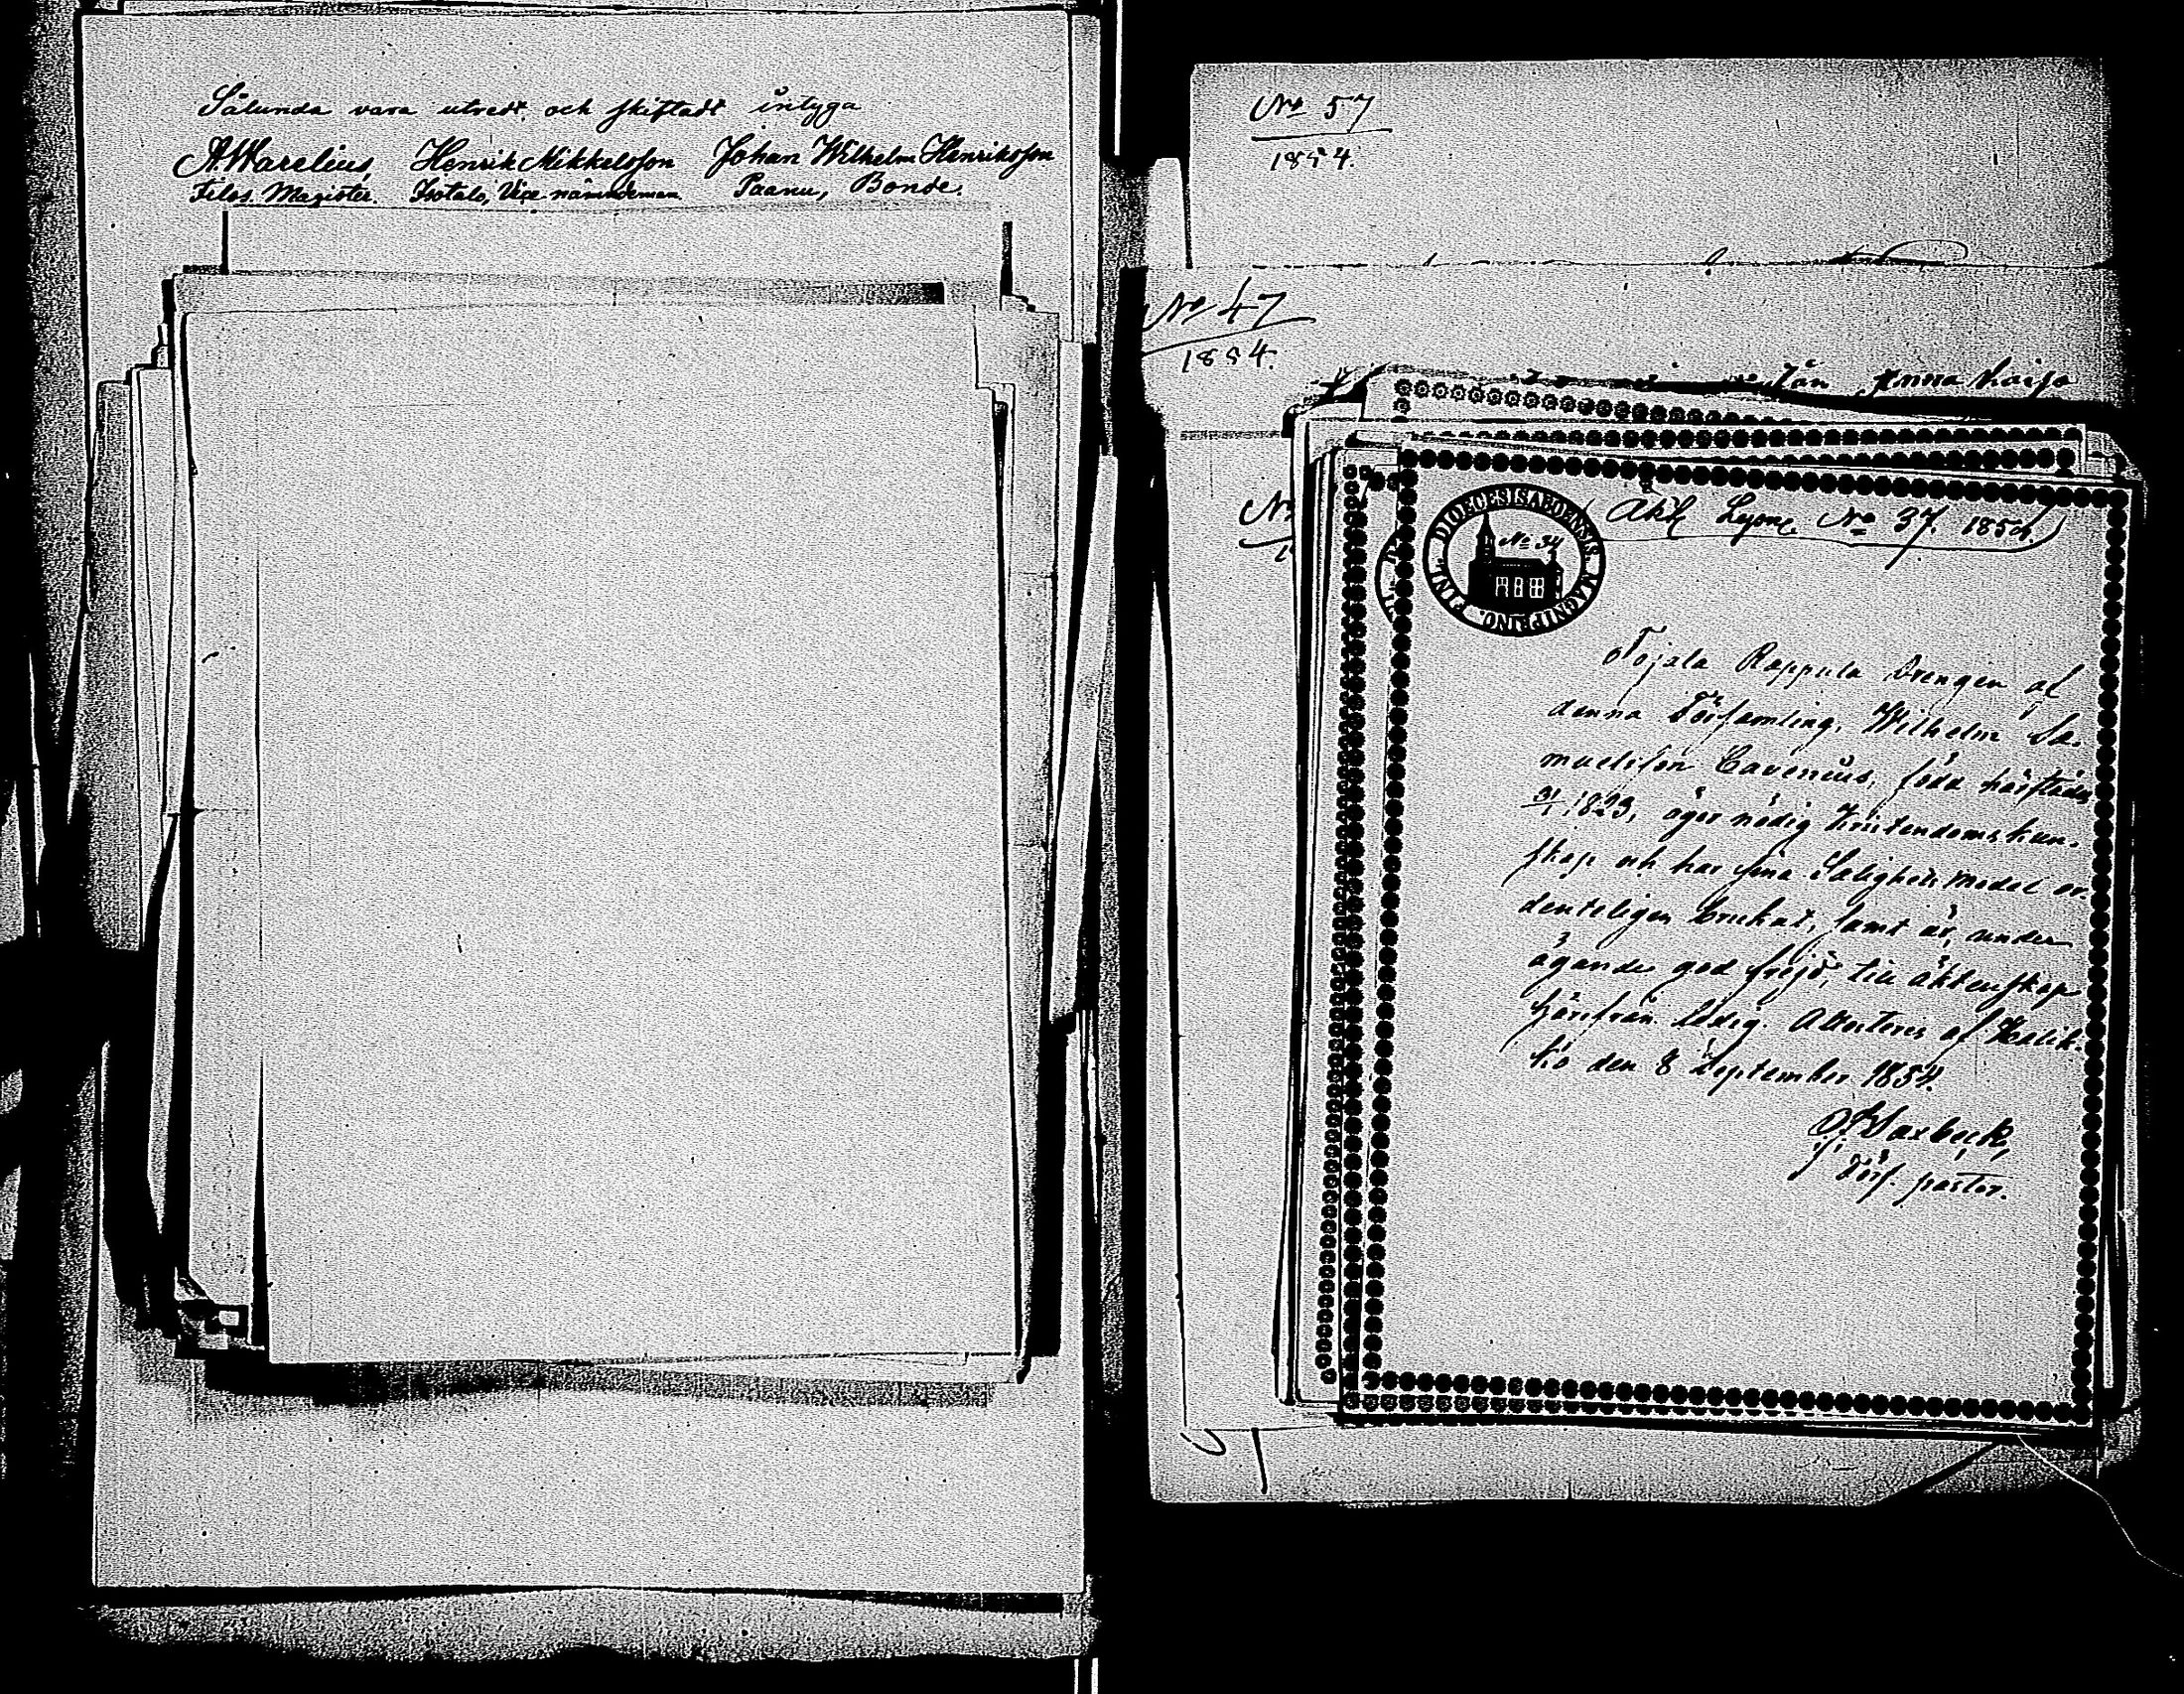 Sålunda vara utredt och skiftadt intyga
A. Warelius, Henrik Mikkelsson Johan Wilhelm Henriksson
Filos. Magister. Isotalo, Vice nämndeman. Paanu, Bonde.
No 57
1854.
No 47
1854.
från Anna Kaisa
No
DIOECESIS ABOENSIS. MAGNI PRINC. FINL.
No 34
Akt Lysn. No 37. 1854.
Tojala Rappula Drengen af
denna Församling, Wilhelm Sa-
muelsson Cavenius, född härstädes
1823, äger nödig Kristendomskun-
skap och har sina Salighets medel or-
denteligen brukat, samt är, under
ägande god frejd, till äktenskap
härifrån ledig. Attesteras af Halik-
ko den 8 September 1854.
Saxbeck,
Förs. pastor.